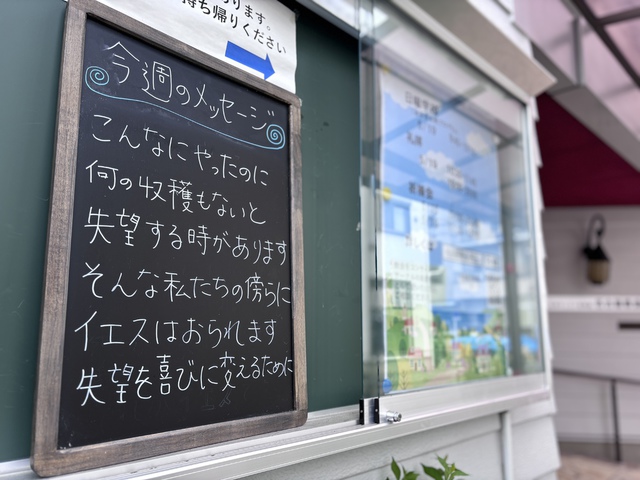 ります。
持ち帰りください
今週のメッセージ
こんなにやったのに
何の収穫もないと
失望する時があります
そんな私たちの傍らに
イエスはおられます
失望を喜びに変えるために